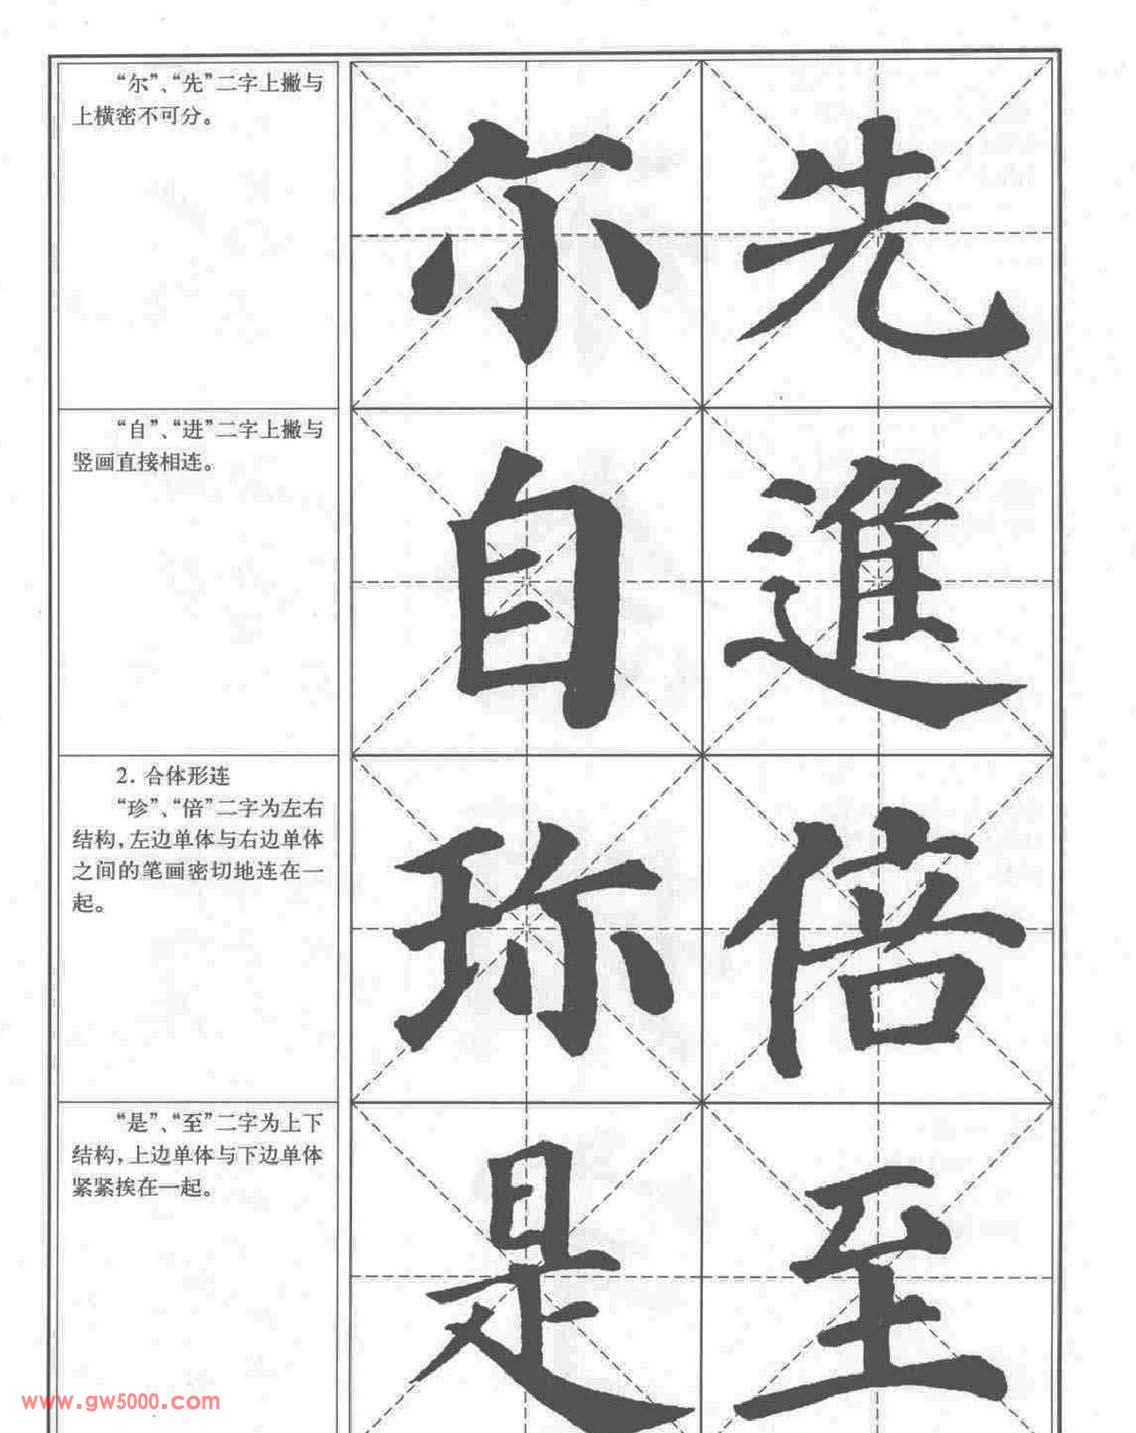 “尔”、“先”二字上撇与
上横密不可分。
尔先
“自”、“进”二字上撇与
竖画直接相连。
自進
2. 合体形连
“珍”、“倍”二字为左右
结构，左边单体与右边单体
之间的笔画密切地连在一
起。
珎倍
“是”、“至”二字为上下
结构，上边单体与下边单体
紧紧挨在一起。
是至
www.gw5000.com